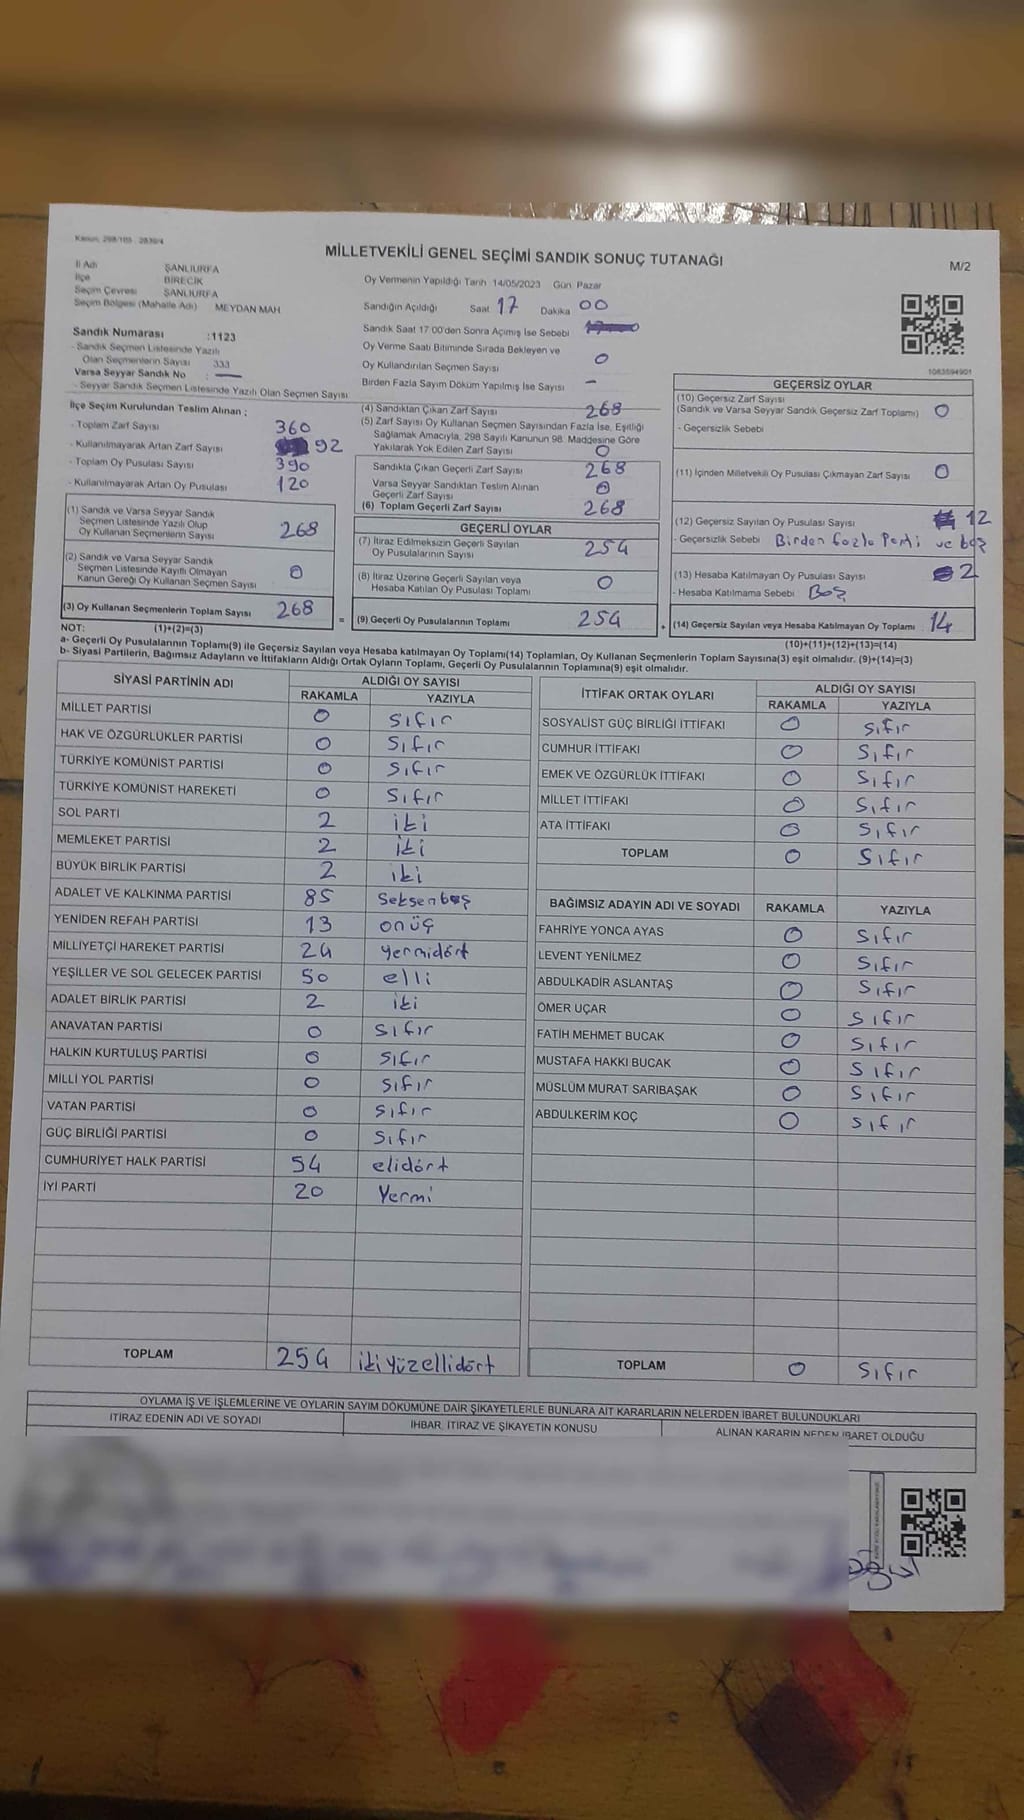 Kanun: 298/105 - 2839/4
MİLLETVEKİLİ GENEL SEÇİMİ SANDIK SONUÇ TUTANAĞI
M/2
İl Adı ŞANLIURFA
İlçe BİRECİK
Seçim Çevresi ŞANLIURFA
Seçim Bölgesi (Mahalle Adı) MEYDAN MAH
Sandık Numarası :1123
- Sandık Seçmen Listesinde Yazılı
Olan Seçmenlerin Sayısı 333
Varsa Seyyar Sandık No : —
- Seyyar Sandık Seçmen Listesinde Yazılı Olan Seçmen Sayısı
Oy Vermenin Yapıldığı Tarih 14/05/2023 Gün: Pazar
Sandığın Açıldığı Saat 17 Dakika 00
Sandık Saat 17 00'den Sonra Açımış İse Sebebi
Oy Verme Saati Bitiminde Sırada Bekleyen ve
Oy Kullandırılan Seçmen Sayısı 0
Birden Fazla Sayım Döküm Yapılmış İse Sayısı –
1083594901
İlçe Seçim Kurulundan Teslim Alınan ;
- Toplam Zarf Sayısı 360
- Kullanılmayarak Artan Zarf Sayısı 92
- Toplam Oy Pusulası Sayısı 390
- Kullanılmayarak Artan Oy Pusulası 120
(1) Sandık ve Varsa Seyyar Sandık
Seçmen Listesinde Yazılı Olup
Oy Kullanan Seçmenlerin Sayısı 268
(2) Sandık ve Varsa Seyyar Sandık
Seçmen Listesinde Kayıtlı Olmayan
Kanun Gereği Oy Kullanan Seçmen Sayısı 0
(3) Oy Kullanan Seçmenlerin Toplam Sayısı 268
(4) Sandıktan Çıkan Zarf Sayısı 268
(5) Zarf Sayısı Oy Kullanan Seçmen Sayısından Fazla İse, Eşitliği
Sağlamak Amacıyla, 298 Sayılı Kanunun 98. Maddesine Göre
Yakılarak Yok Edilen Zarf Sayısı 0
Sandıkta Çıkan Geçerli Zarf Sayısı 268
Varsa Seyyar Sandıktan Teslim Alınan
Geçerli Zarf Sayısı 0
(6) Toplam Geçerli Zarf Sayısı 268
GEÇERLİ OYLAR
(7) İtiraz Edilmeksizin Geçerli Sayılan
Oy Pusulalarının Sayısı 254
(8) İtiraz Üzerine Geçerli Sayılan veya
Hesaba Katılan Oy Pusulası Toplamı 0
= (9) Geçerli Oy Pusulalarının Toplamı 254
GEÇERSİZ OYLAR
(10) Geçersiz Zarf Sayısı
(Sandık ve Varsa Seyyar Sandık Geçersiz Zarf Toplamı) 0
- Geçersizlik Sebebi
(11) İçinden Milletvekili Oy Pusulası Çıkmayan Zarf Sayısı 0
(12) Geçersiz Sayılan Oy Pusulası Sayısı 12
- Geçersizlik Sebebi Birden fazla Parti ve boş
(13) Hesaba Katılmayan Oy Pusulası Sayısı 2
- Hesaba Katılmama Sebebi Boş
+ (14) Geçersiz Sayılan veya Hesaba Katılmayan Oy Toplamı 14
NOT: (1)+(2)=(3)
(10)+(11)+(12)+(13)=(14)
a- Geçerli Oy Pusulalarının Toplamı(9) ile Geçersiz Sayılan veya Hesaba katılmayan Oy Toplamı(14) Toplamları, Oy Kullanan Seçmenlerin Toplam Sayısına(3) eşit olmalıdır. (9)+(14)=(3)
b- Siyasi Partilerin, Bağımsız Adayların ve İttifakların Aldığı Ortak Oyların Toplamı, Geçerli Oy Pusulalarının Toplamına(9) eşit olmalıdır.
SİYASİ PARTİNİN ADI ALDIĞI OY SAYISI
RAKAMLA YAZIYLA
MİLLET PARTİSİ 0 sıfır
HAK VE ÖZGÜRLÜKLER PARTİSİ 0 Sıfır
TÜRKİYE KOMÜNİST PARTİSİ 0 Sıfır
TÜRKİYE KOMÜNİST HAREKETİ 0 Sıfır
SOL PARTİ 2 iki
MEMLEKET PARTİSİ 2 iki
BÜYÜK BİRLİK PARTİSİ 2 iki
ADALET VE KALKINMA PARTİSİ 85 Seksenbeş
YENİDEN REFAH PARTİSİ 13 onüç
MİLLİYETÇİ HAREKET PARTİSİ 24 yermidört
YEŞİLLER VE SOL GELECEK PARTİSİ 50 elli
ADALET BİRLİK PARTİSİ 2 iki
ANAVATAN PARTİSİ 0 sıfır
HALKIN KURTULUŞ PARTİSİ 0 sıfır
MİLLİ YOL PARTİSİ 0 sıfır
VATAN PARTİSİ 0 sıfır
GÜÇ BİRLİĞİ PARTİSİ 0 sıfır
CUMHURİYET HALK PARTİSİ 54 elidört
İYİ PARTİ 20 Yermi
TOPLAM 254 ikiyüzellidört
İTTİFAK ORTAK OYLARI ALDIĞI OY SAYISI
RAKAMLA YAZIYLA
SOSYALİST GÜÇ BİRLİĞİ İTTİFAKI 0 sıfır
CUMHUR İTTİFAKI 0 sıfır
EMEK VE ÖZGÜRLÜK İTTİFAKI 0 sıfır
MİLLET İTTİFAKI 0 sıfır
ATA İTTİFAKI 0 sıfır
TOPLAM 0 sıfır
BAĞIMSIZ ADAYIN ADI VE SOYADI RAKAMLA YAZIYLA
FAHRİYE YONCA AYAS 0 sıfır
LEVENT YENİLMEZ 0 sıfır
ABDULKADİR ASLANTAŞ 0 sıfır
ÖMER UÇAR 0 sıfır
FATİH MEHMET BUCAK 0 sıfır
MUSTAFA HAKKI BUCAK 0 sıfır
MÜSLÜM MURAT SARIBAŞAK 0 sıfır
ABDULKERİM KOÇ 0 sıfır
TOPLAM 0 sıfır
OYLAMA İŞ VE İŞLEMLERİNE VE OYLARIN SAYIM DÖKÜMÜNE DAİR ŞİKAYETLERLE BUNLARA AİT KARARLARIN NELERDEN İBARET BULUNDUKLARI
İTİRAZ EDENİN ADI VE SOYADI İHBAR, İTİRAZ VE ŞİKAYETİN KONUSU ALINAN KARARIN NEDEN İBARET OLDUĞU